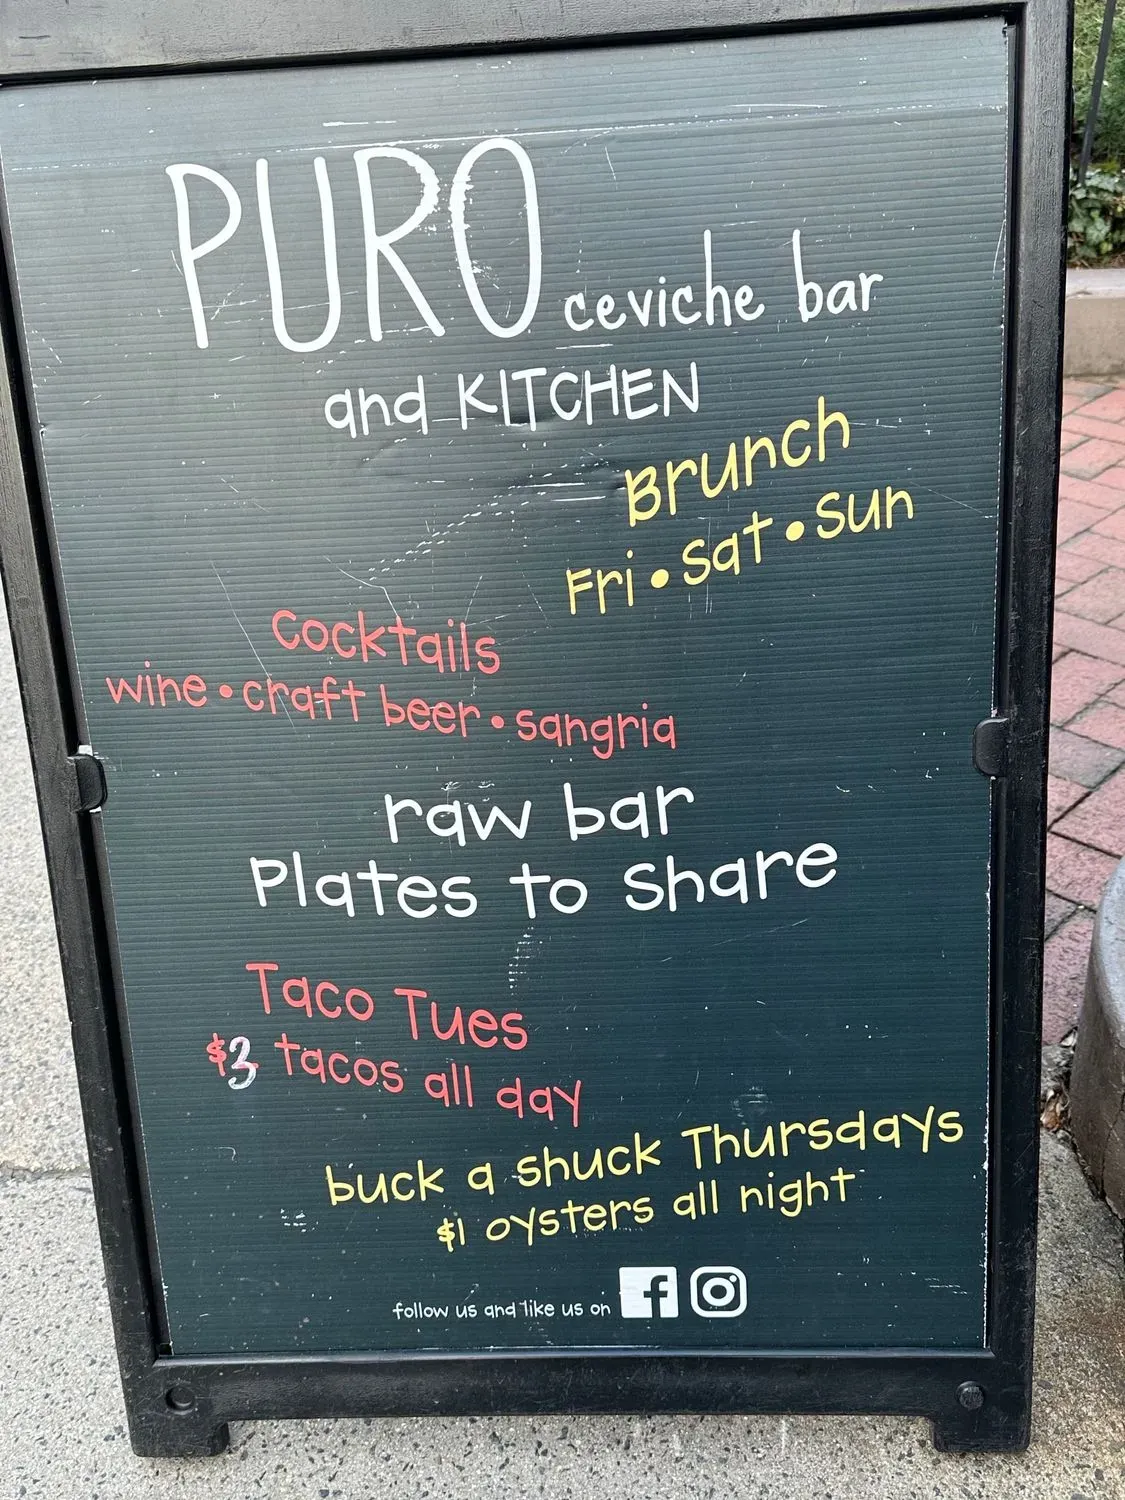 PURO ceviche bar
and KITCHEN
Brunch
Fri • Sat • Sun
Cocktails
wine • craft beer • sangria
raw bar
Plates to Share
Taco Tues
$3 tacos all day
buck a shuck Thursdays
$1 oysters all night
follow us and like us on